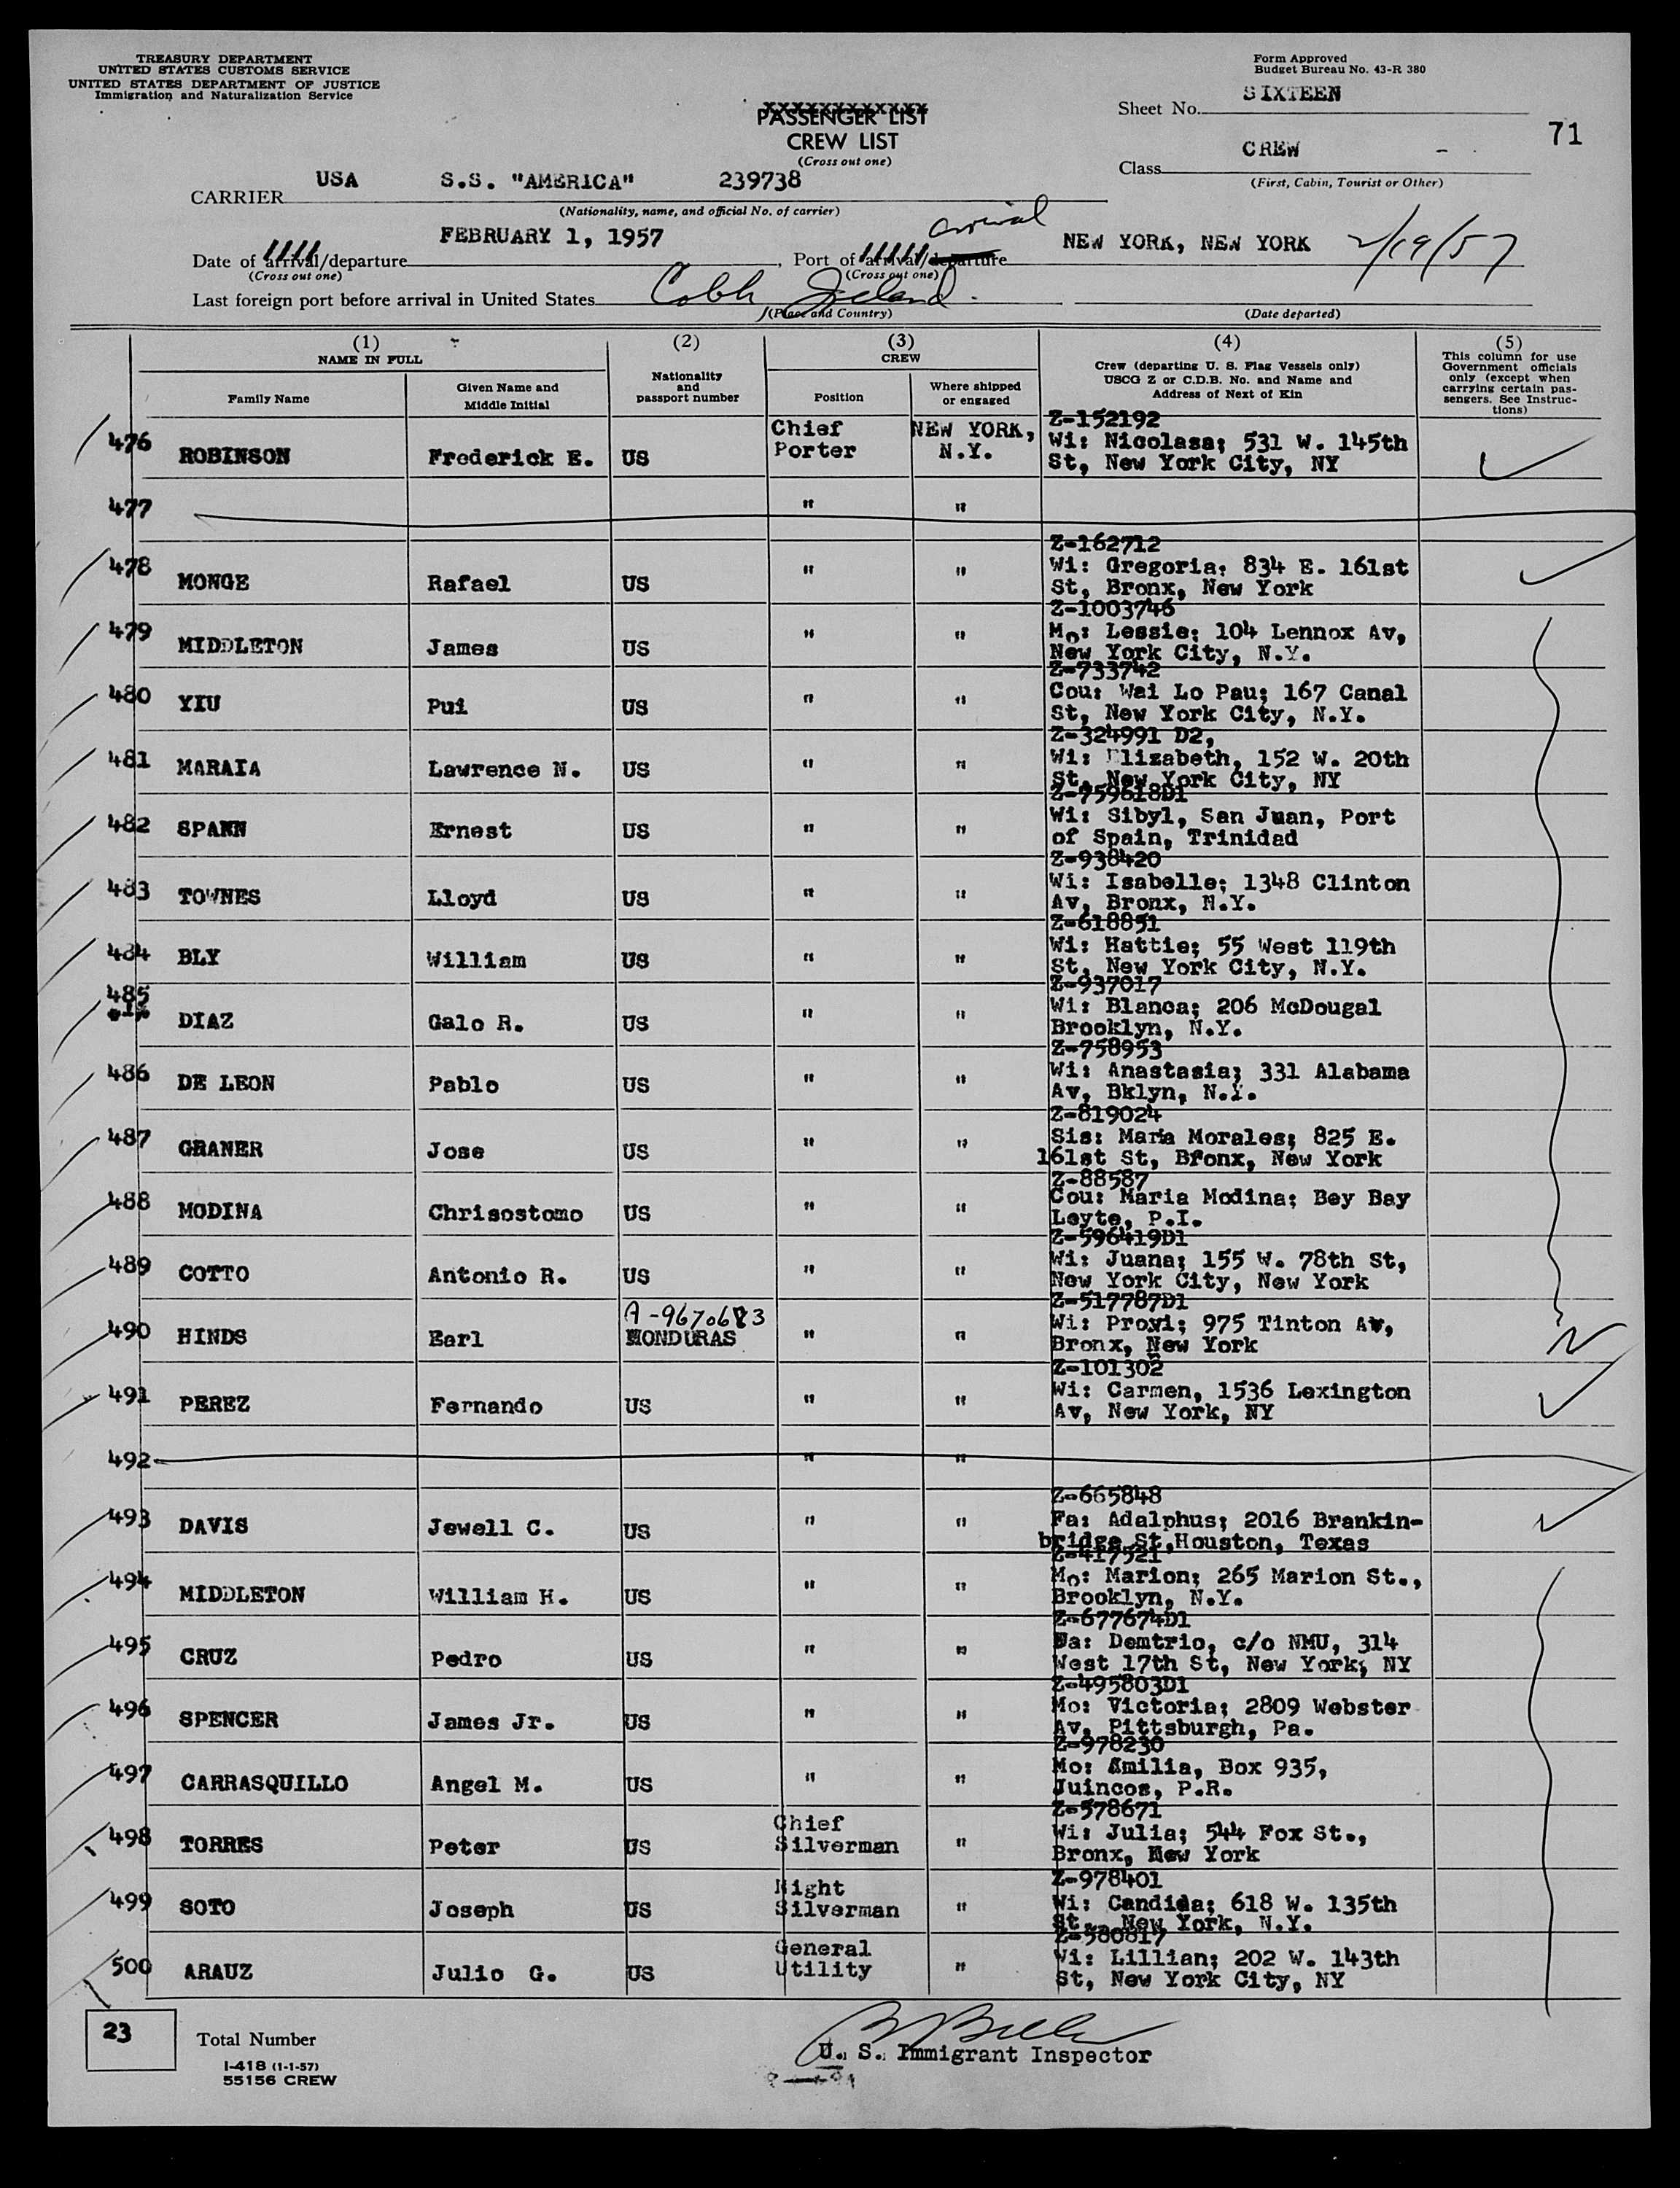 TREASURY DEPARTMENT
UNITED STATES CUSTOMS SERVICE
UNITED STATES DEPARTMENT OF JUSTICE
Immigration and Naturalization Service
Form Approved
Budget Bureau No. 43-R 380
Sheet No. SIXTEEN
71
PASSENGER LIST
CREW LIST
(Cross out one)
Class CREW
(First, Cabin, Tourist or Other)
CARRIER USA S.S. "AMERICA" 239738
(Nationality, name, and official No. of carrier)
arrival
Date of arrival/departure FEBRUARY 1, 1957, Port of arrival/departure NEW YORK, NEW YORK 2/19/57
(Cross out one) (Cross out one)
Last foreign port before arrival in United States Cobh Ireland.
(Place and Country) (Date departed)
(1) NAME IN FULL
Family Name
Given Name and Middle Initial
(2) Nationality and passport number
(3) CREW
Position
Where shipped or engaged
(4) Crew (departing U. S. Flag Vessels only) USCG Z or C.D.B. No. and Name and Address of Next of Kin
(5) This column for use Government officials only (except when carrying certain passengers. See Instructions)
Z-152192
476 ROBINSON Frederick E. US Chief Porter NEW YORK, N.Y. Wi: Nicolasa; 531 W. 145th
St, New York City, NY
477 " "
Z-162712
478 MONGE Rafael US " " Wi: Gregoria; 834 E. 161st
St, Bronx, New York
Z-1003746
479 MIDDLETON James US " " Mo: Lessie; 104 Lennox Av,
New York City, N.Y.
Z-733742
480 YIU Pui US " " Cou: Wai Lo Pau; 167 Canal
St, New York City, N.Y.
Z-324991 D2,
481 MARAIA Lawrence N. US " " Wi: Elizabeth, 152 W. 20th
St, New York City, NY
Z-759618D1
482 SPANN Ernest US " " Wi: Sibyl, San Juan, Port
of Spain, Trinidad
Z-938420
483 TOWNES Lloyd US " " Wi: Isabelle; 1348 Clinton
Av, Bronx, N.Y.
Z-618851
484 BLY William US " " Wi: Hattie; 55 West 119th
St, New York City, N.Y.
Z-937017
485 DIAZ Galo R. US " " Wi: Blanca; 206 McDougal
Brooklyn, N.Y.
Z-758953
486 DE LEON Pablo US " " Wi: Anastasia; 331 Alabama
Av, Bklyn, N.Y.
Z-819024
487 GRANER Jose US " " Sis: Maria Morales; 825 E.
161st St, Bronx, New York
Z-88587
488 MODINA Chrisostomo US " " Cou: Maria Modina; Bey Bay
Leyte, P.I.
Z-596419D1
489 COTTO Antonio R. US " " Wi: Juana; 155 W. 78th St,
New York City, New York
A-9670683 Z-517787D1
490 HINDS Earl HONDURAS " " Wi: Provi; 975 Tinton Av, N
Bronx, New York
Z-101302
491 PEREZ Fernando US " " Wi: Carmen, 1536 Lexington
Av, New York, NY
492 " "
Z-665848
493 DAVIS Jewell C. US " " Fa: Adalphus; 2016 Brankin-
bridge St, Houston, Texas
Z-417521
494 MIDDLETON William H. US " " Mo: Marion; 265 Marion St.,
Brooklyn, N.Y.
Z-677674D1
495 CRUZ Pedro US " " Fa: Demtrio, c/o NMU, 314
West 17th St, New York, NY
Z-495803D1
496 SPENCER James Jr. US " " Mo: Victoria; 2809 Webster
Av, Pittsburgh, Pa.
Z-978230
497 CARRASQUILLO Angel M. US " " Mo: Emilia, Box 935,
Juincos, P.R.
Z-578671
498 TORRES Peter US Chief Silverman " Wi: Julia; 544 Fox St.,
Bronx, New York
Z-978401
499 SOTO Joseph US Night Silverman " Wi: Candida; 618 W. 135th
St., New York, N.Y.
Z-580817
500 ARAUZ Julio G. US General Utility " Wi: Lillian; 202 W. 143th
St, New York City, NY
23 Total Number
I-418 (1-1-57)
55156 CREW
U. S. Immigrant Inspector